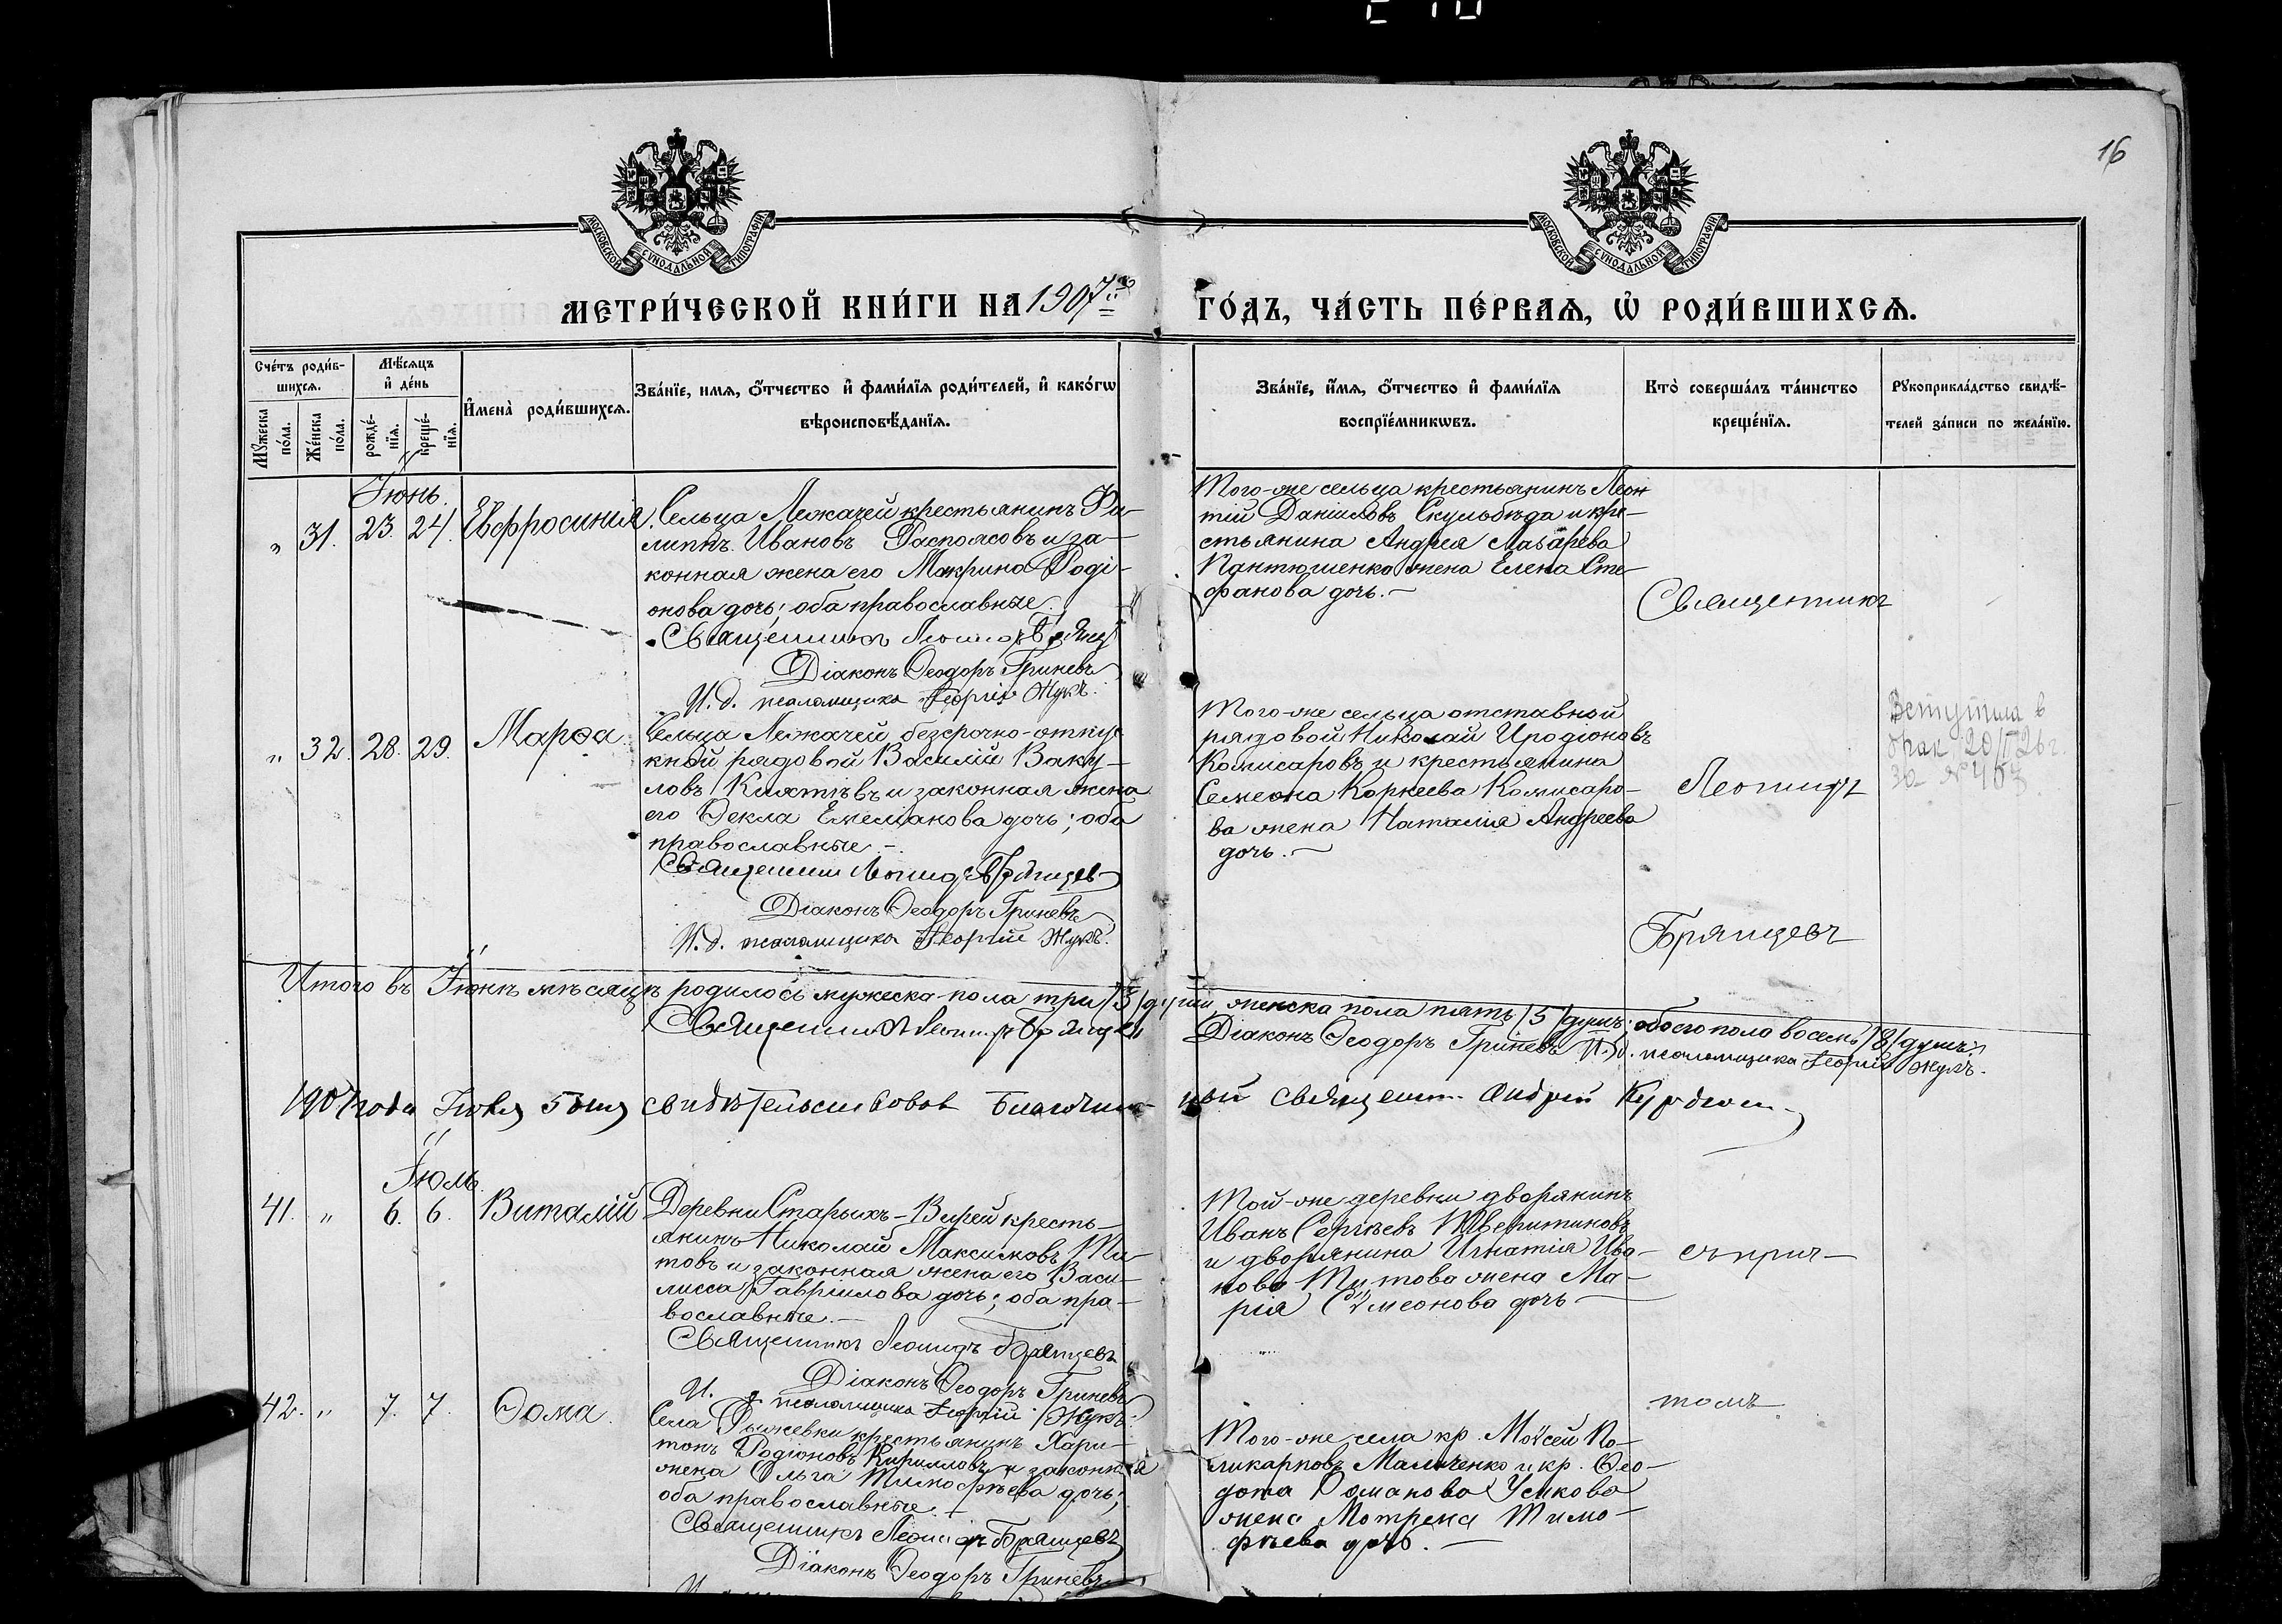 16
МОСКОВСКОЙ СУНОДАЛЬНОЙ ТИПОГРАФІИ
МОСКОВСКОЙ СУНОДАЛЬНОЙ ТИПОГРАФІИ
МЕТРИ́ЧЕСКОЙ КНИ́ГИ НА 1907й
ГО́ДЪ, ЧА́СТЬ ПЕ́РВАѦ, Ѡ҆ РОДИ́ВШИХСѦ.
Сче́тъ роди́в-
шихсѧ.
Мꙋ́жеска
по́ла.
Же́нска
по́ла.
Мѣ́сѧцъ
и҆ де́нь
рожде́-
нїѧ.
креще́-
нїѧ.
И҆мена̀ роди́вшихсѧ.
Зва́нїе, имѧ, ѻ҆́тчество и҆ фами́лїѧ роди́телей, и҆ како́гѡ
вѣроисповѣ́данїѧ.
Зва́нїе, и҆́мѧ, ѻ҆́тчество и҆ фами́лїѧ
воспрїе́мникѡвъ.
Кто̀ соверша́лъ та́инство
креще́нїѧ.
Рꙋкоприкла́дство свидѣ́-
телей за́писи по жела́нїю.
Іюнь.
" 31. 23. 24. Евфросинія.
Сельца Лежачей крестьянинъ Фи-
липпъ Ивановъ Распоясовъ и за-
конная жена его Макрина Родi-
онова дочь; оба православные.
Священникъ Леонидъ Брянц
Діаконъ Ѳеодоръ Гриневъ
И. д. псаломщика Георгій Жукъ.
Того-же сельца крестьянинъ Леон
тій Даніиловъ Скульбѣда и кре-
стьянина Андрея Лазарева
Пантюшенко жена Елена Сте-
фанова дочь.-
Священникъ
" 32. 28. 29. Марѳа
Сельца Лежачей безсрочно-отпус
кной рядовой Василій Ваку-
ловъ и законная жена
его Ѳекла Емеліанова дочь; оба
православные.-
Священник Леонидъ Брянцев
Діаконъ Ѳеодоръ Гриневъ
И. д. псаломщика Георгій Жукъ.
Того-же сельца отставной
рядовой Николай Иродіоновъ
Комисаровъ и крестьянина
Семеона Корнеева Комисаро-
ва жена Наталія Андреева
дочь.-
Леонидъ
Вступила в
брак 20/I 26 г.
за №
Брянцевъ
Итого въ Іюнѣ мѣсяцѣ родилось мужеска-пола три /3/ души, женска пола пять /5/ душъ; обоего пола восемь /8/ душъ.
Священник Леонидъ Брянцев Діаконъ Ѳеодоръ Гриневъ И. д. псаломщика Георгій Жукъ.
1907 года Іюля 5 дня свидѣтельствовалъ Благочин- ный Священ. Андрей
Іюль.
41. " 6. 6. Виталій
Деревни Старыхъ-Вирей кресть-
янинъ Николай Максимовъ Ти-
товъ и законная жена его Васи-
лисса Гавриилова дочь; оба пра-
вославные.-
Священникъ Леонидъ Брянцевъ
Діаконъ Ѳеодоръ Гриневъ
И. д. псаломщика Георгій Жукъ.
Той-же деревни дворянинъ
Иванъ Сергѣевъ Тверитиновъ
и дворянина Игнатія Ива-
нова жена Ма-
рія Сѵмеонова дочь
съ прич-
42. " 7. 7. Ѳома.
Села Рыжевки крестьянинъ Хари-
тонъ Родіоновъ Кирилловъ и законная
жена Ольга Тимофѣева дочь;
оба православные.
Священникъ Леонидъ Брянцевъ
Діаконъ Ѳеодоръ Гриневъ
томъ
Того-же села кр. Моѵсей По-
ликарповъ Мальченко и кр. Ѳео-
дота Романова Усикова
жена Мотрена Тимо-
фѣева дочь.-